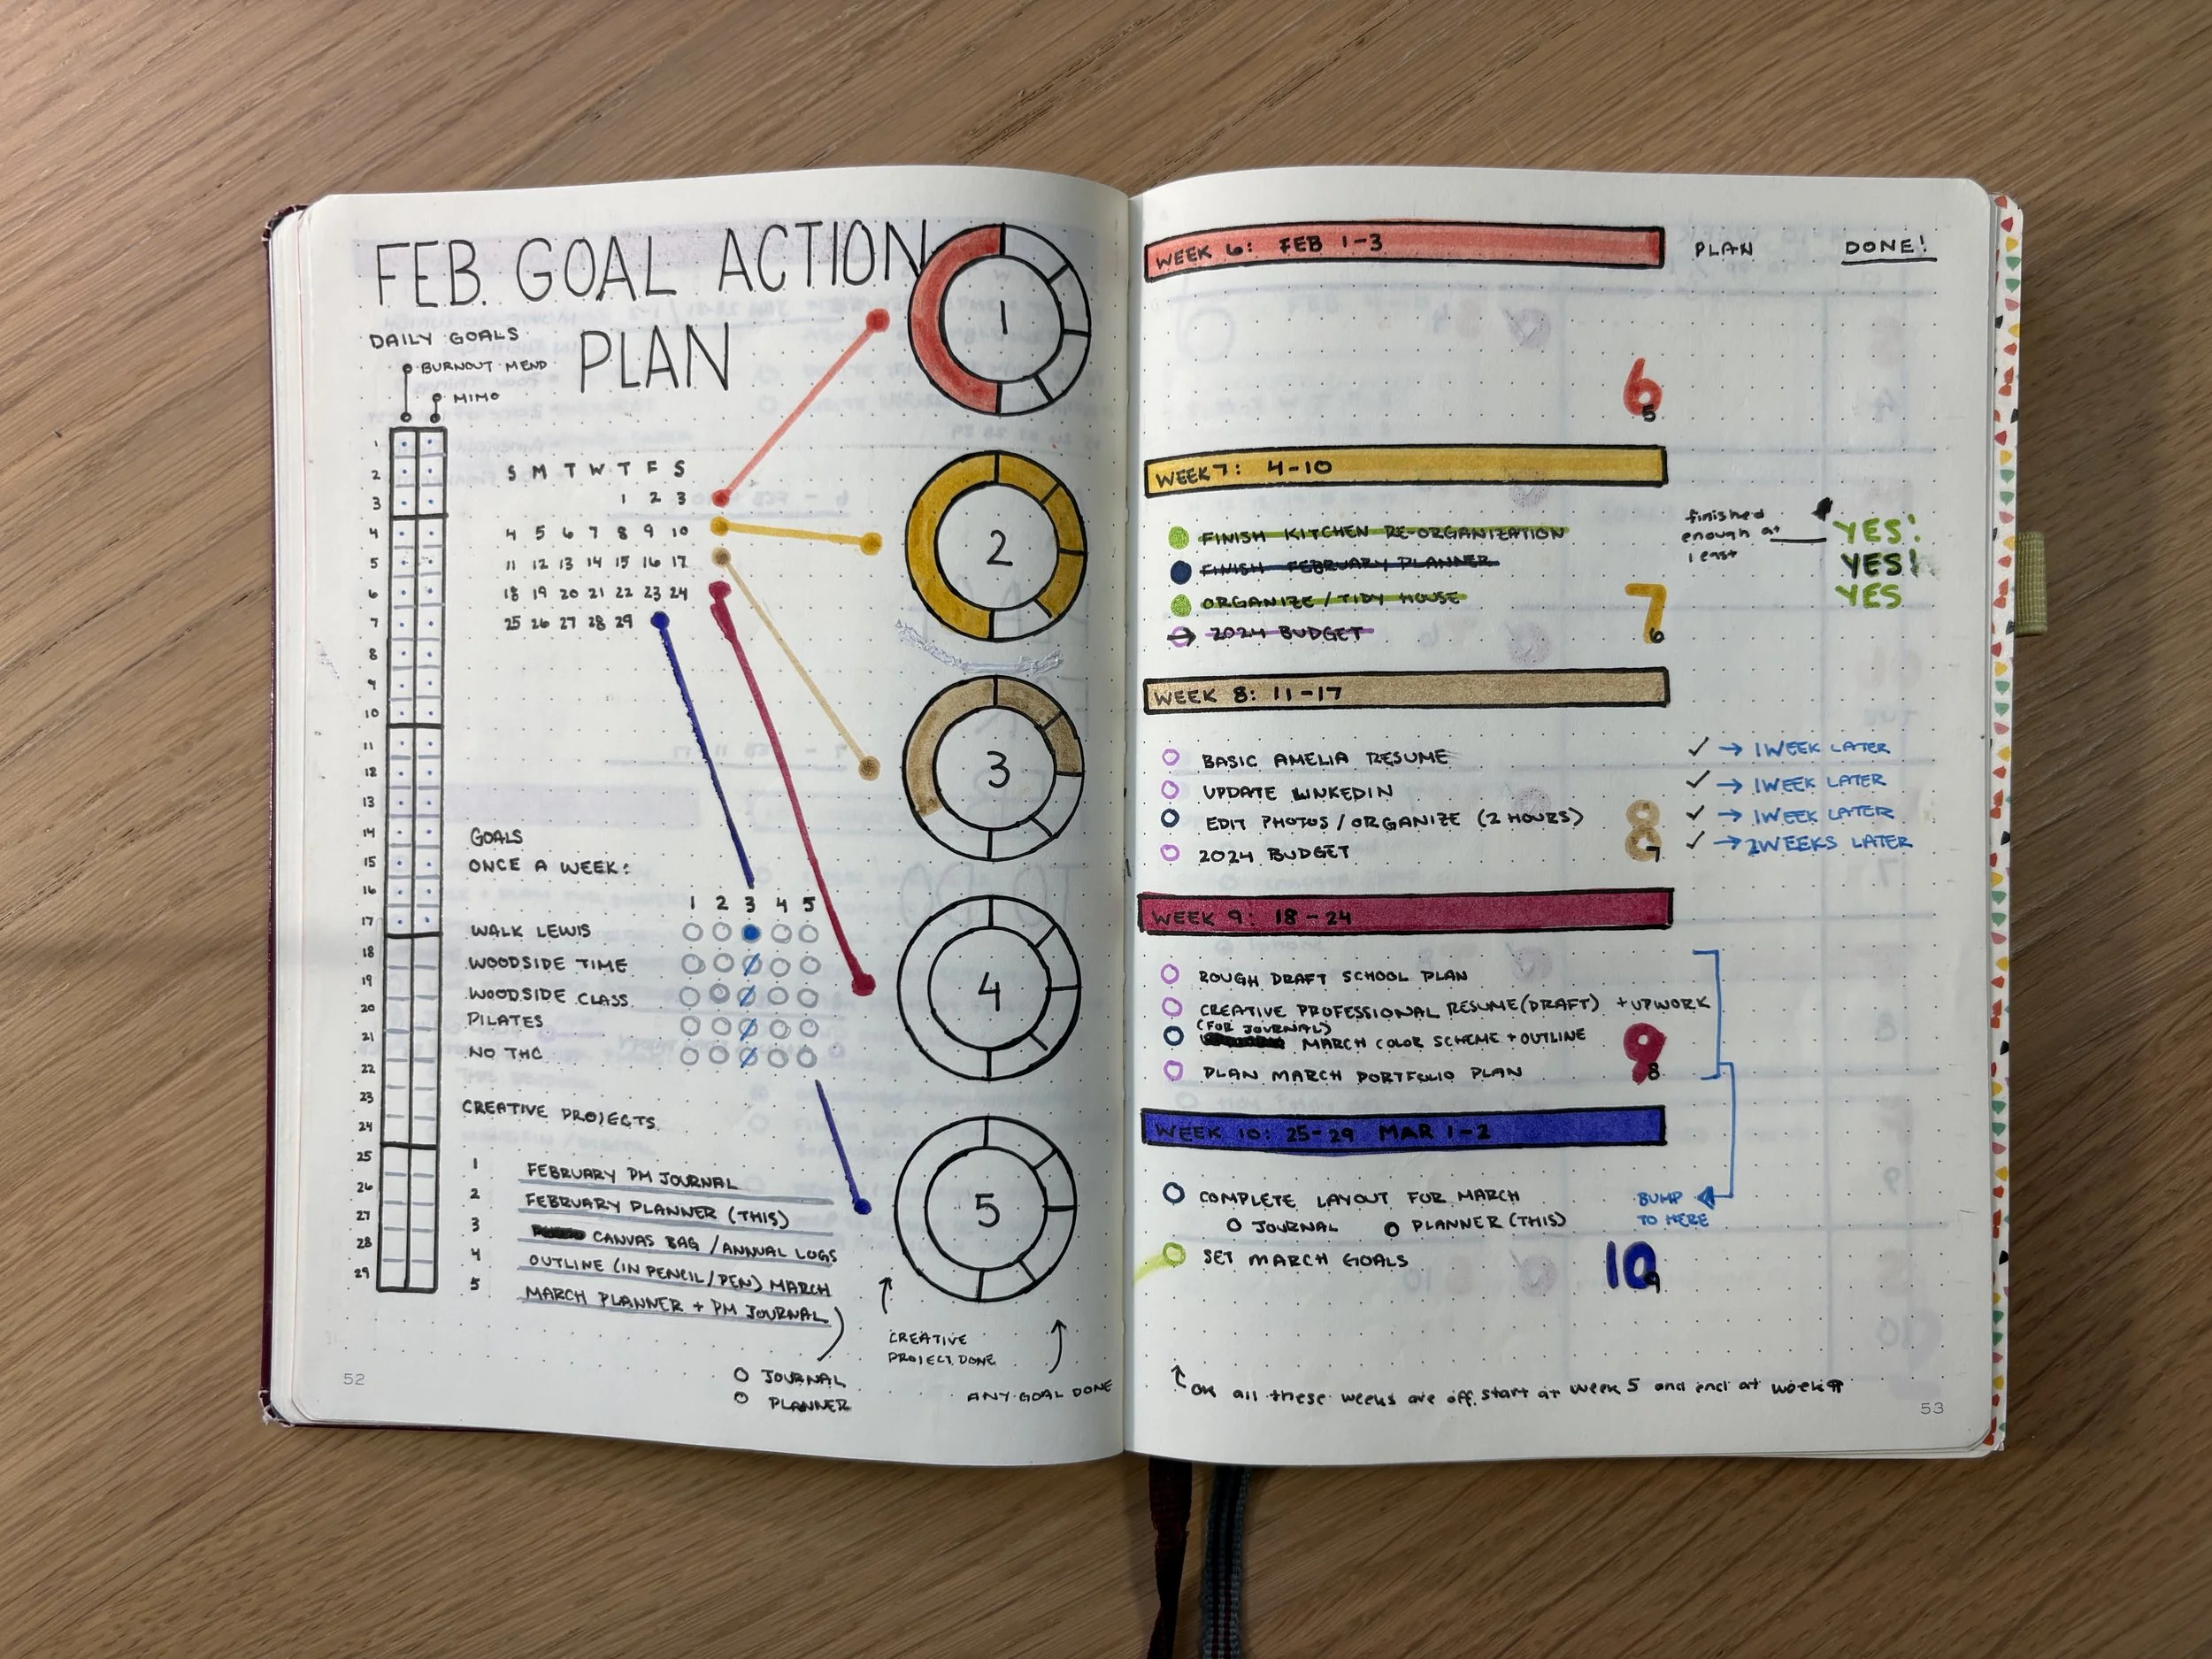 FEB. GOAL ACTION
PLAN
DAILY GOALS
BURNOUT MEND
MIMO
1
2
3
4
5
6
7
8
9
10
11
12
13
14
15
16
17
18
19
20
21
22
23
24
25
26
27
28
29
S M T W T F S
1 2 3
4 5 6 7 8 9 10
11 12 13 14 15 16 17
18 19 20 21 22 23 24
25 26 27 28 29
GOALS
ONCE A WEEK:
1 2 3 4 5
WALK LEWIS
WOODSIDE TIME
WOODSIDE CLASS
PILATES
NO THC
CREATIVE PROJECTS
1 FEBRUARY PM JOURNAL
2 FEBRUARY PLANNER (THIS)
3 CANVAS BAG / ANNUAL LOGS
4 OUTLINE (IN PENCIL/PEN) MARCH
5 MARCH PLANNER + PM JOURNAL
JOURNAL
PLANNER
1
2
3
4
5
CREATIVE
PROJECT DONE
ANY GOAL DONE
52
WEEK 6: FEB 1-3
PLAN
DONE!
6
5
WEEK 7: 4-10
FINISH KITCHEN RE-ORGANIZATION
finished
enough at
least
YES!
FINISH FEBRUARY PLANNER
YES!
ORGANIZE / TIDY HOUSE
YES
→ 2024 BUDGET
7
6
WEEK 8: 11-17
BASIC AMELIA RESUME ✓ → 1 WEEK LATER
UPDATE LINKEDIN ✓ → 1 WEEK LATER
EDIT PHOTOS / ORGANIZE (2 HOURS) ✓ → 1 WEEK LATER
2024 BUDGET ✓ → 2 WEEKS LATER
8
7
WEEK 9: 18-24
ROUGH DRAFT SCHOOL PLAN
CREATIVE PROFESSIONAL RESUME (DRAFT) + UPWORK
(FOR JOURNAL)
MARCH COLOR SCHEME + OUTLINE
PLAN MARCH PORTFOLIO PLAN
9
8
WEEK 10: 25-29 MAR 1-2
COMPLETE LAYOUT FOR MARCH
JOURNAL PLANNER (THIS)
BUMP
TO HERE
SET MARCH GOALS
10
9
ok all these weeks are off. start at week 5 and end at week 9
53